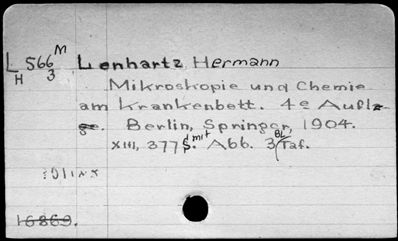 L 566 M Lenhartz Hermann
H 3
Mikroskopie und Chemie
am Krankenbett. 4e Aufla
ge. Berlin, Springer, 1904.
XIII, 377 S. mit Abb. 3 Bl. Taf.
16869.